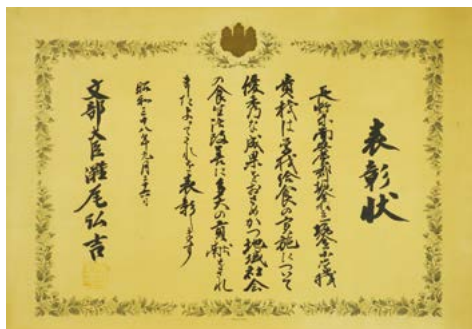 表彰状
長野県南安曇郡堀金村堀金小学校
貴校は学校給食の実施について
優秀な成果をおさめかつ地域社会
の食生活改善に多大の貢献をされ
ましたよってこれを表彰します
昭和三十八年
文部大臣灘尾弘吉